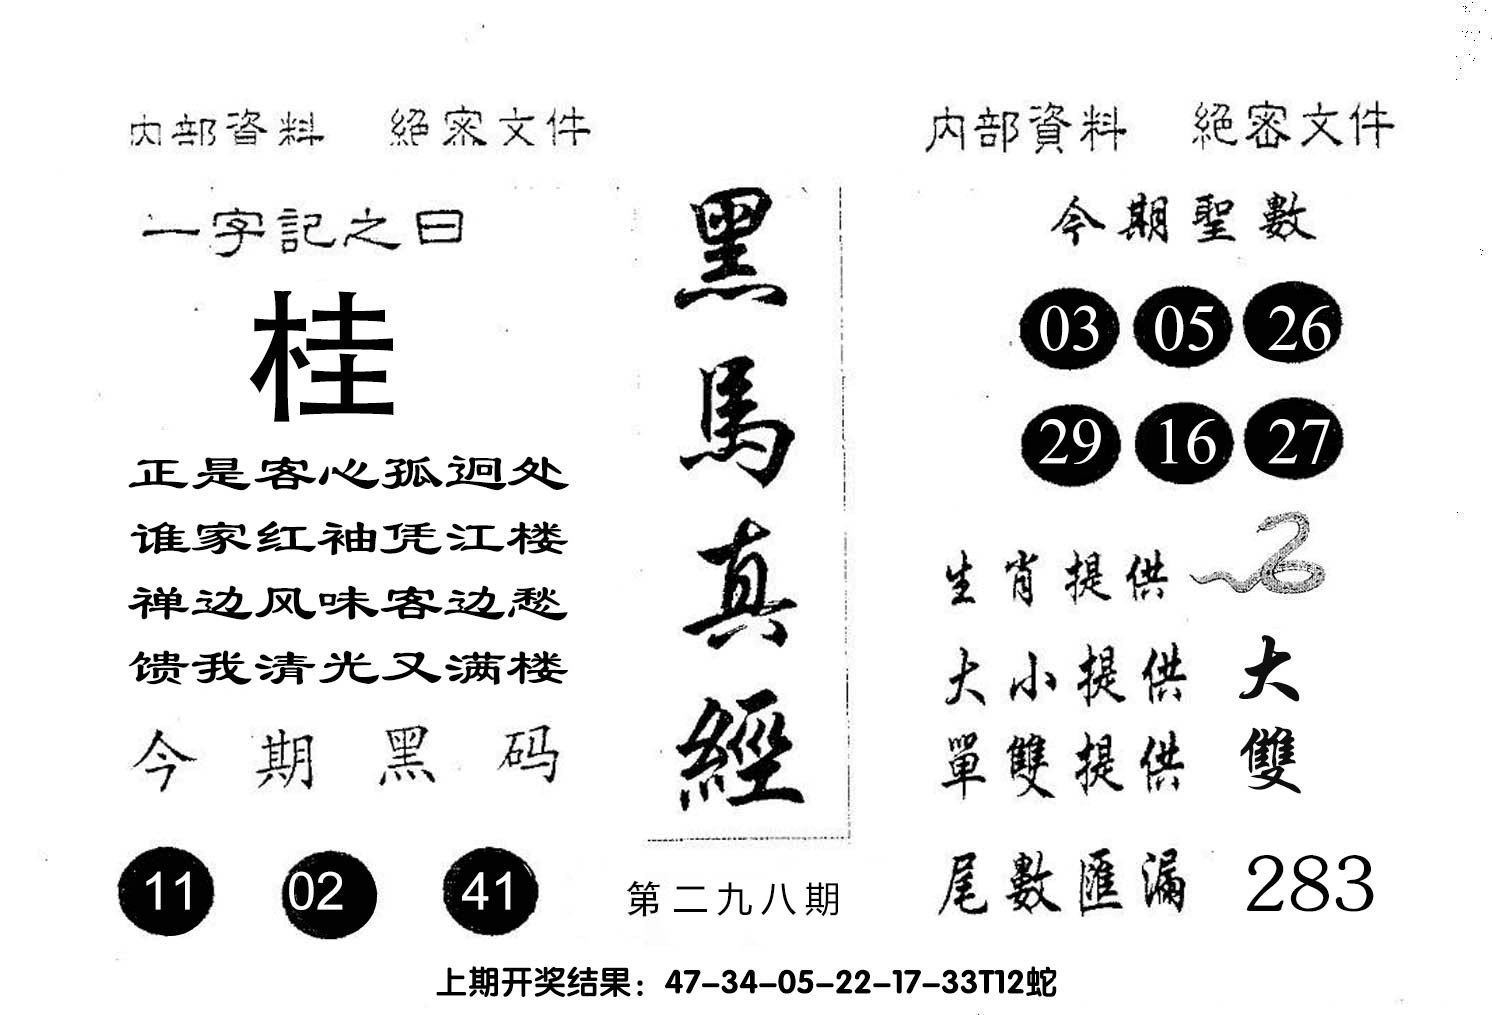 内部資料 絕密文件
一字記之曰
桂
正是客心孤迥处
谁家红袖凭江楼
禅边风味客边愁
馈我清光又满楼
今期黑码
11 02 41
黑馬真經
第二九八期
内部資料 絕密文件
今期聖數
03 05 26
29 16 27
生肖提供
大小提供 大
單雙提供 雙
尾數匯漏 283
上期开奖结果：47-34-05-22-17-33T12蛇